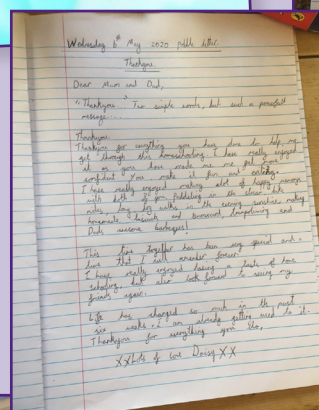 Wednesday 6th May 2020 public letter.
Thankyou.
Dear Mum and Dad,
"Thankyou" Two simple words, but such a powerful
message...
Thankyou.
Thankyou for everything you have done to help me
get through this homeschooling. I have really enjoyed
it as you have made me feel more
confident. You make it fun and
I have really enjoyed making alot of happy memories
with both of you. Paddeling in the
long dog walks in the evening sunshine, making
homemade biscuits and
Dads awesome barbeques!
This time together has been very special and a
time that I will remember forever.
I have really enjoyed having a taste of home
schooling, but also look forward to seeing my
friends again.
Life has changed so much in the past
six weeks. I am already getting used to it.
Thankyou for everything you do,
XX Lots of love Daisy XX